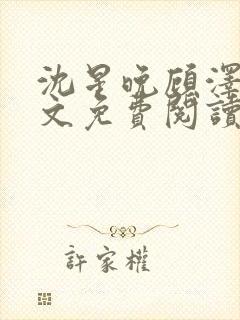 沈星晚顾泽
文免費閱讀
許家權